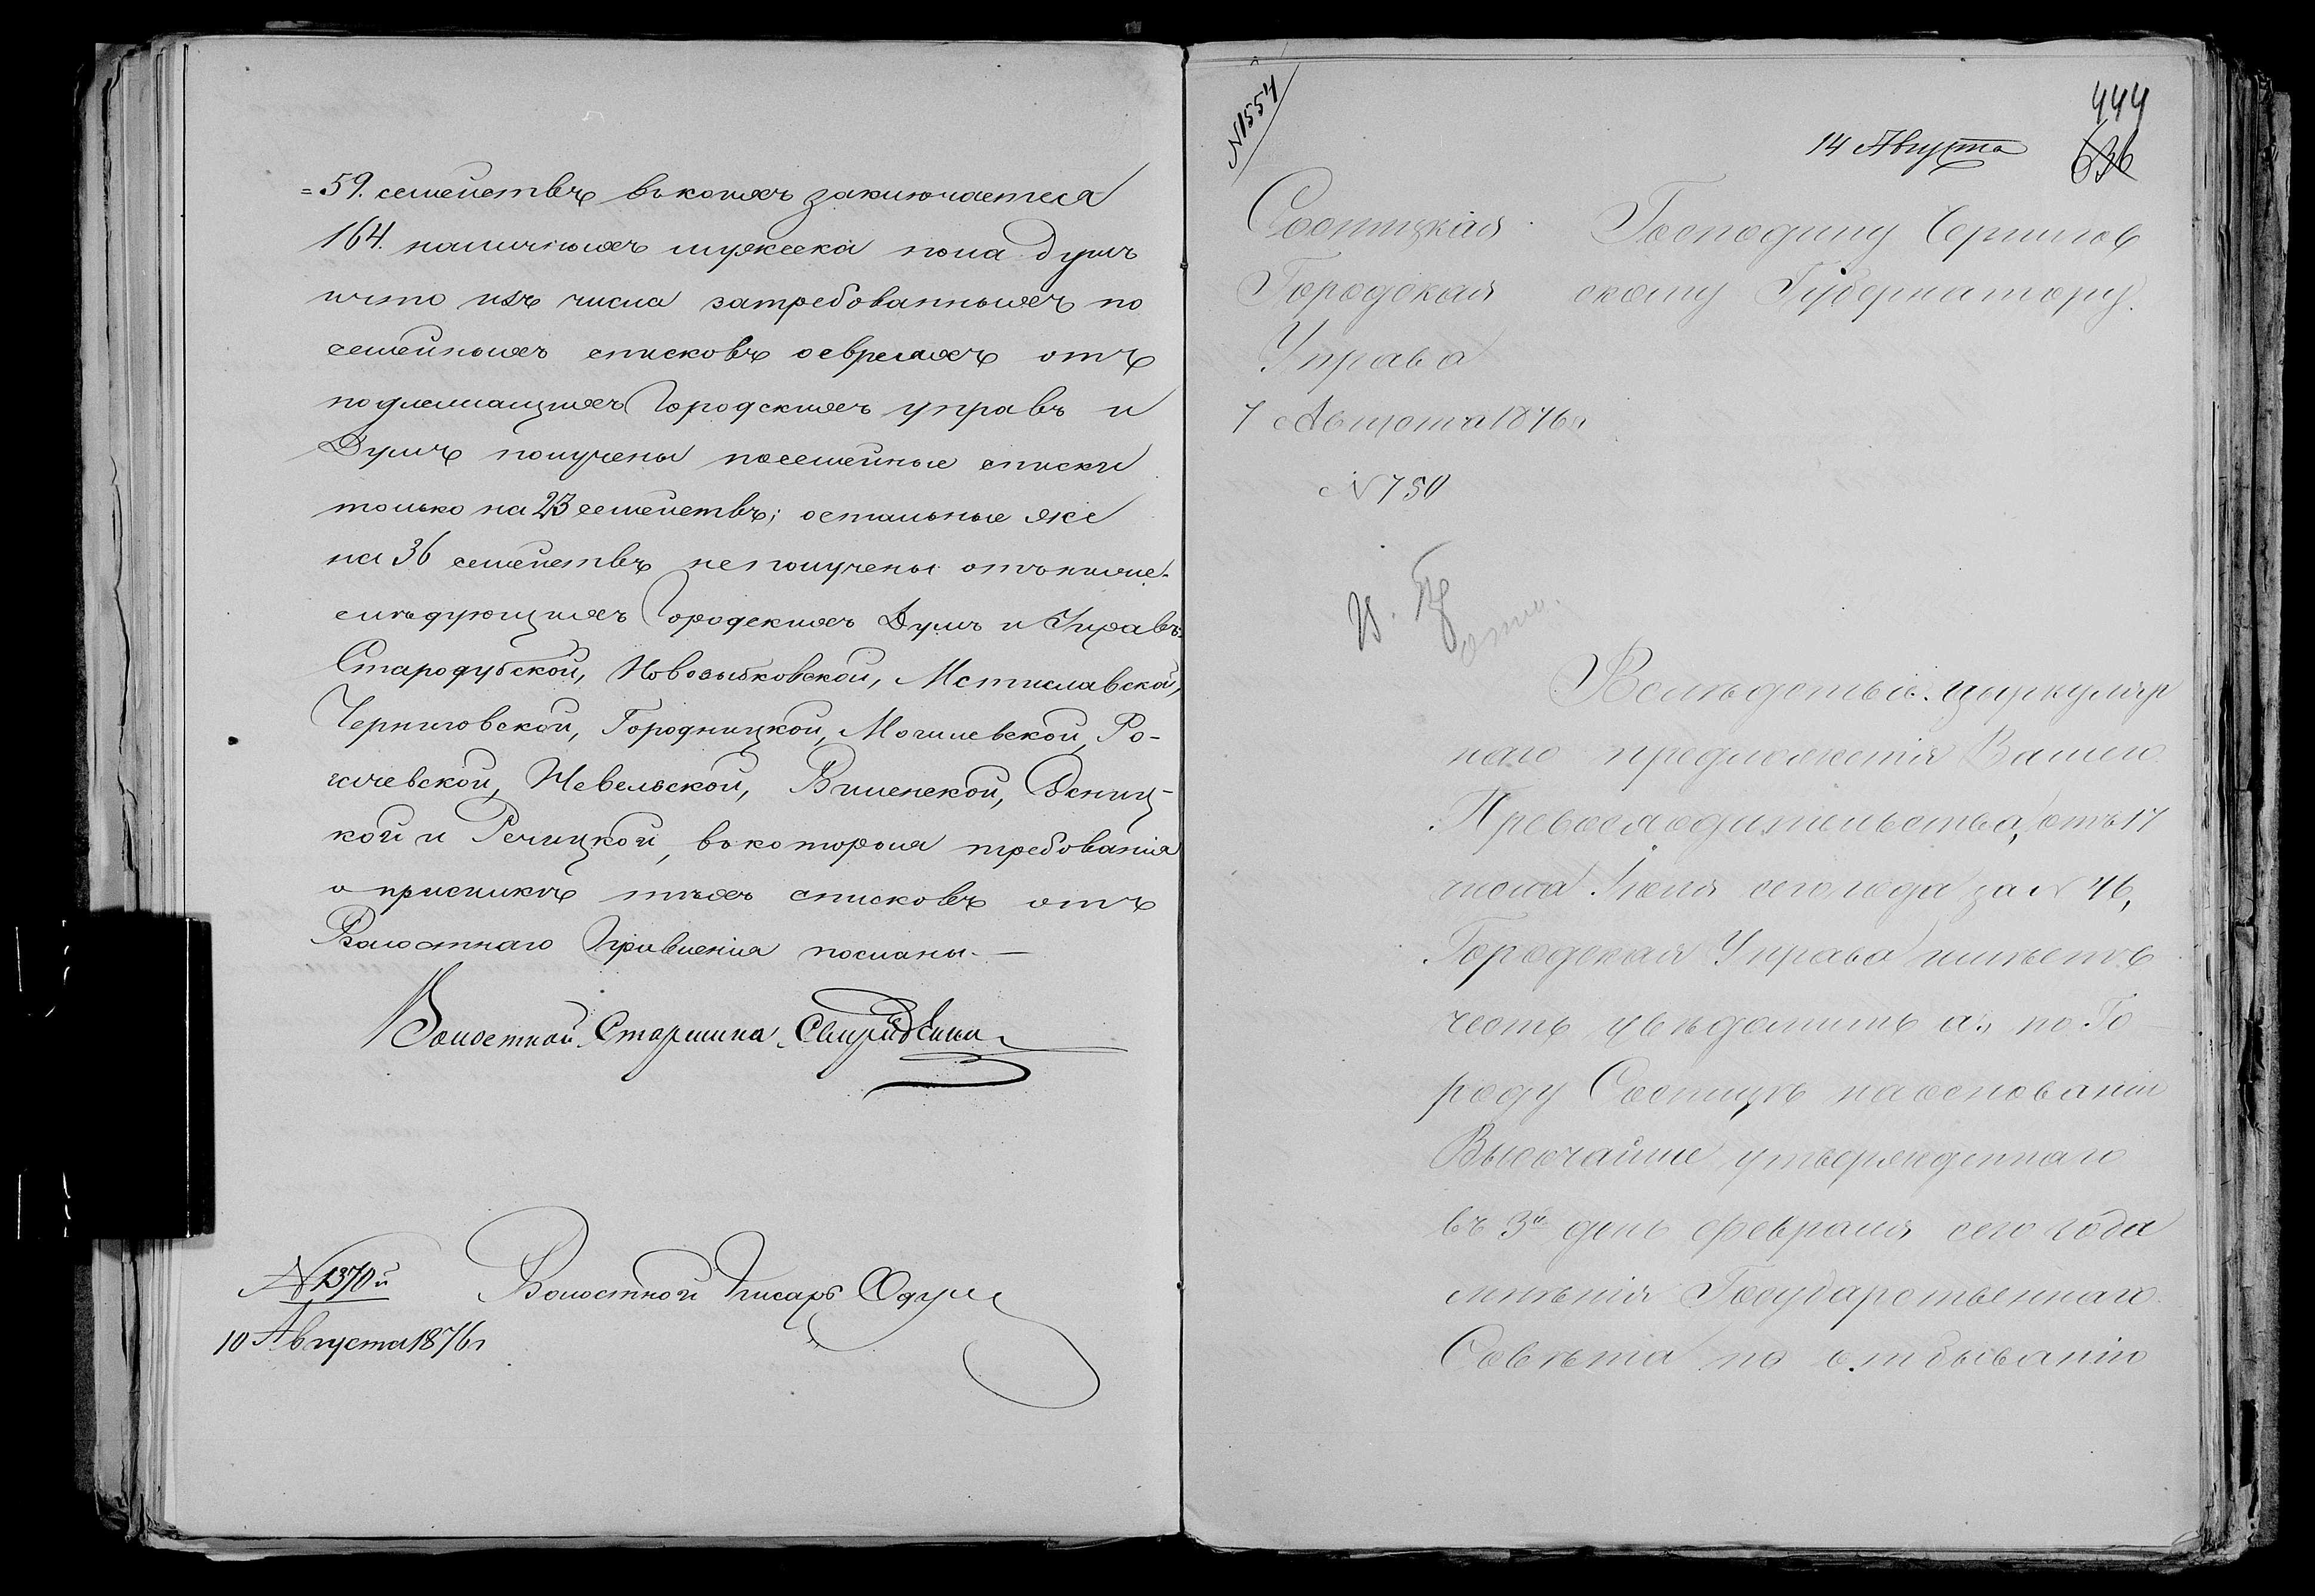 =59. семействъ въ коихъ заключается
164. наличныхъ мужскаго пола душъ
что изъ числа затребованныхъ по
семейныхъ списковъ о евреяхъ отъ
подлежащихъ Городскихъ управъ и
Думъ получены посемейные списки
только на 23 семействъ; остальные же
на 36 семействъ не получены отъ ниже-
слѣдующихъ Городскихъ Думъ и Управъ:
Стародубской, Новозыбковской, Мстиславской,
Черниговской, Городницкой, Могилевской, Ро-
гачевской, Невельской, Виленской, Сосниц-
кой и Речицкой, въ которыя требованія
о присылкѣ тѣхъ списковъ отъ
Волостнаго Правленія посланы.—
Волостной Старшина
N 1370й
Волостной Писарь
10 Августа 1876 г
N 1554
444
14 Августа
636
Сосницкая
Городская
Управа
7 Августа 1876 г
N 750
Господину Чернигов
скому Губернатору.
Вслѣдствіе циркуляр
наго предложенія Вашего
Превосходительства, отъ 17
числа Іюня сего года за N 46,
Городская Управа имѣетъ
честь увѣдомить, по Го
роду Сосницѣ на основаніи
Высочайше утвержденнаго
въ 3й день февраля сего года
мнѣнія Государственнаго
Совѣта по отбыванію